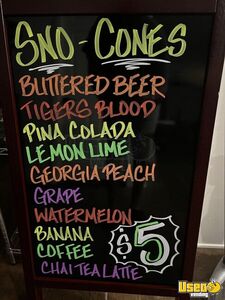 SNO-CONES
BUTTERED BEER
TIGERS BLOOD
PINA COLADA
LEMON LIME
GEORGIA PEACH
GRAPE
WATERMELON
BANANA
COFFEE
CHAI TEA LATTE
$5
Used
vending